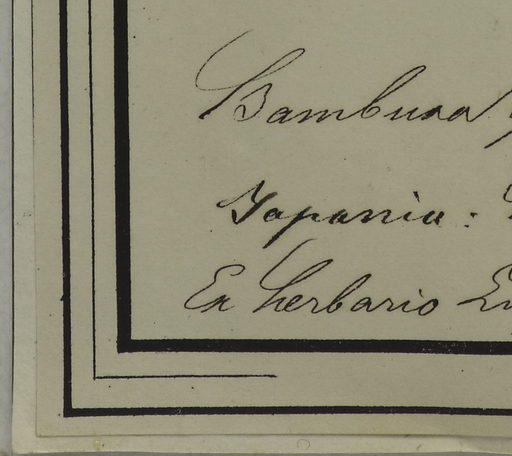 Bambusa
Japania:
Ex herbario